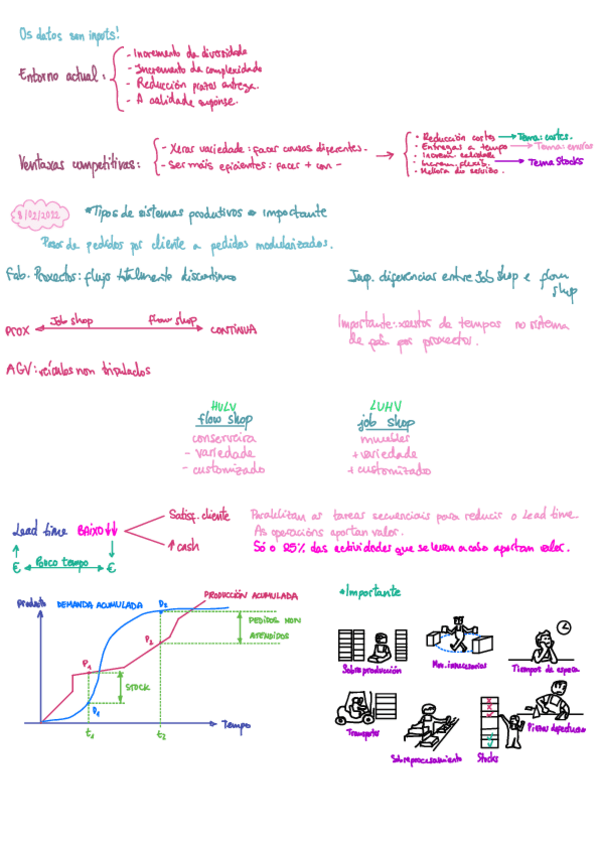 Os datos son inputs!
Entorno actual:
- Incremento da diversidade
- Incremento da complexidade
- Reducción prazos entrega.
- A calidade suponse.
Ventaxas competitivas:
- Xerar variedade: facer cousas diferentes.
- Ser mais eficientes: facer + con -
· Reducción costes → Tema: costes.
· Entregas a tempo → Tema: envíos
· Increm. calidade
· Increm. flexib. → Tema Stocks
· Mellora do servizo.
8/02/2022
*Tipos de sistemas produtivos → importante
Pasar de pedidos por cliente a pedidos modularizados.
Fab. Proxectos: flujo totalmente discontinuo
Imp. diferencias entre Job shop e flow shop
PROX
Job shop
flow shop
CONTINUA
Importante: xestor de tempos no sistema
de fab por proxectos.
AGV: veículos non tripulados
HVLV
flow shop
conserveira
- variedade
- customizado
LVHV
job shop
muebles
+ variedade
+ customizado
Lead time BAIXO ↓↓
Satisf. cliente
↑ cash
€ Poco tempo €
Paralelizan as tareas secuenciais para reducir o Lead time.
As operacións aportan valor.
Só o 25% das actividades que se levan a cabo aportan valor.
Producto
DEMANDA ACUMULADA
PRODUCCIÓN ACUMULADA
D2
P2
PEDIDOS NON
ATENDIDOS
P1
STOCK
D1
t1
t2
Tempo
*Importante
Sobreproducción
Mov. innecesarios
Tiempos de espera
Transportes
Sobreprocesamiento
Stocks
Piezas defectuosas